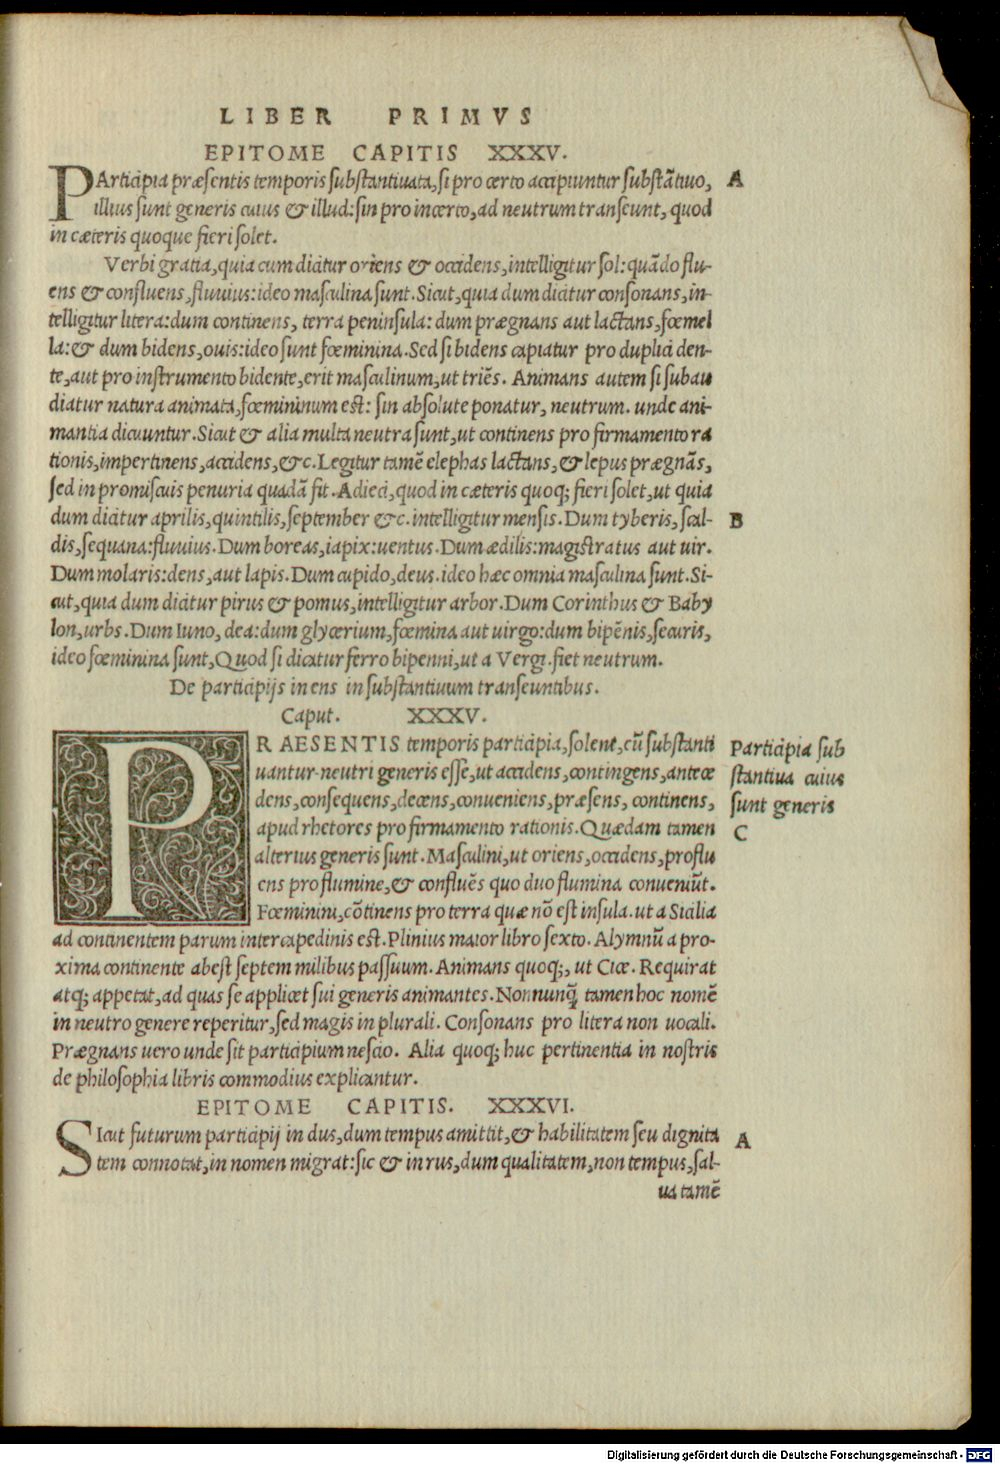 LIBER PRIMVS
EPITOME CAPITIS XXXV.
PArticipia præsentis temporis substantiuata, si pro certo accipiuntur substātiuo, A
illius sunt generis cuius & illud: sin pro incerto, ad neutrum transeunt, quod
in cæteris quoque fieri solet.
Verbi gratia, quia cum dicitur oriens & occidens, intelligitur sol: quādo flu-
ens & confluens, fluuius: ideo masculina sunt. Sicut, quia dum dicitur consonans, in-
telligitur litera: dum continens, terra peninsula: dum prægnans aut lactans, fœmel
la: & dum bidens, ouis: ideo sunt fœminina. Sed si bidens capiatur pro duplici den-
te, aut pro instrumento bidente, erit masculinum, ut triēs. Animans autem si subau
diatur natura animata, fœmininum est: sin absolute ponatur, neutrum. unde ani-
mantia dicuuntur. Sicut & alia multa neutra sunt, ut continens pro firmamento ra
tionis, impertinens, accidens, &c. Legitur tamē elephas lactans, & lepus prægnās,
sed in promiscuis penuria quadā fit. Adieci, quod in cæteris quoq; fieri solet, ut quia
dum dicitur aprilis, quintilis, september &c. intelligitur mensis. Dum tyberis, scal- B
dis, sequana: fluuius. Dum boreas, iapix: uentus. Dum ædilis: magistratus aut uir.
Dum molaris: dens, aut lapis. Dum cupido, deus. ideo hæc omnia masculina sunt. Si-
cut, quia dum dicitur pirus & pomus, intelligitur arbor. Dum Corinthus & Baby
lon, urbs. Dum Iuno, dea: dum glycerium, fœmina aut uirgo: dum bipēnis, securis,
ideo fœminina sunt, Quod si dicatur ferro bipenni, ut a Vergi. fiet neutrum.
De participijs in ens in substantiuum transeuntibus.
Caput. XXXV.
PRAESENTIS temporis participia, solent, cū substanti
uantur neutri generis esse, ut accidens, contingens, antece
dens, consequens, decens, conueniens, præsens, continens,
apud rhetores pro firmamento rationis. Quædam tamen
alterius generis sunt. Masculini, ut oriens, occidens, proflu
ens pro flumine, & confluēs quo duo flumina conueniūt.
Fœminini, cōtinens pro terra quæ nō est insula. ut a Sicilia
ad continentem parum intercapedinis est. Plinius maior libro sexto. A lymnū a pro-
xima continente abest septem milibus passuum. Animans quoq;, ut Cice. Requirat
atq; appetat, ad quas se applicet sui generis animantes. Nonnunq̄ tamen hoc nomē
in neutro genere reperitur, sed magis in plurali. Consonans pro litera non uocali.
Prægnans uero unde sit participium nescio. Alia quoq; huc pertinentia in nostris
de philosophia libris commodius explicantur.
Participia sub
stantiua cuius
sunt generis
C
EPITOME CAPITIS. XXXVI.
SIcut futurum participij in dus, dum tempus amittit, & habilitatem seu dignita A
tem connotat, in nomen migrat: sic & in rus, dum qualitatem, non tempus, sal-
ua tamē
Digitalisierung gefördert durch die Deutsche Forschungsgemeinschaft - DFG